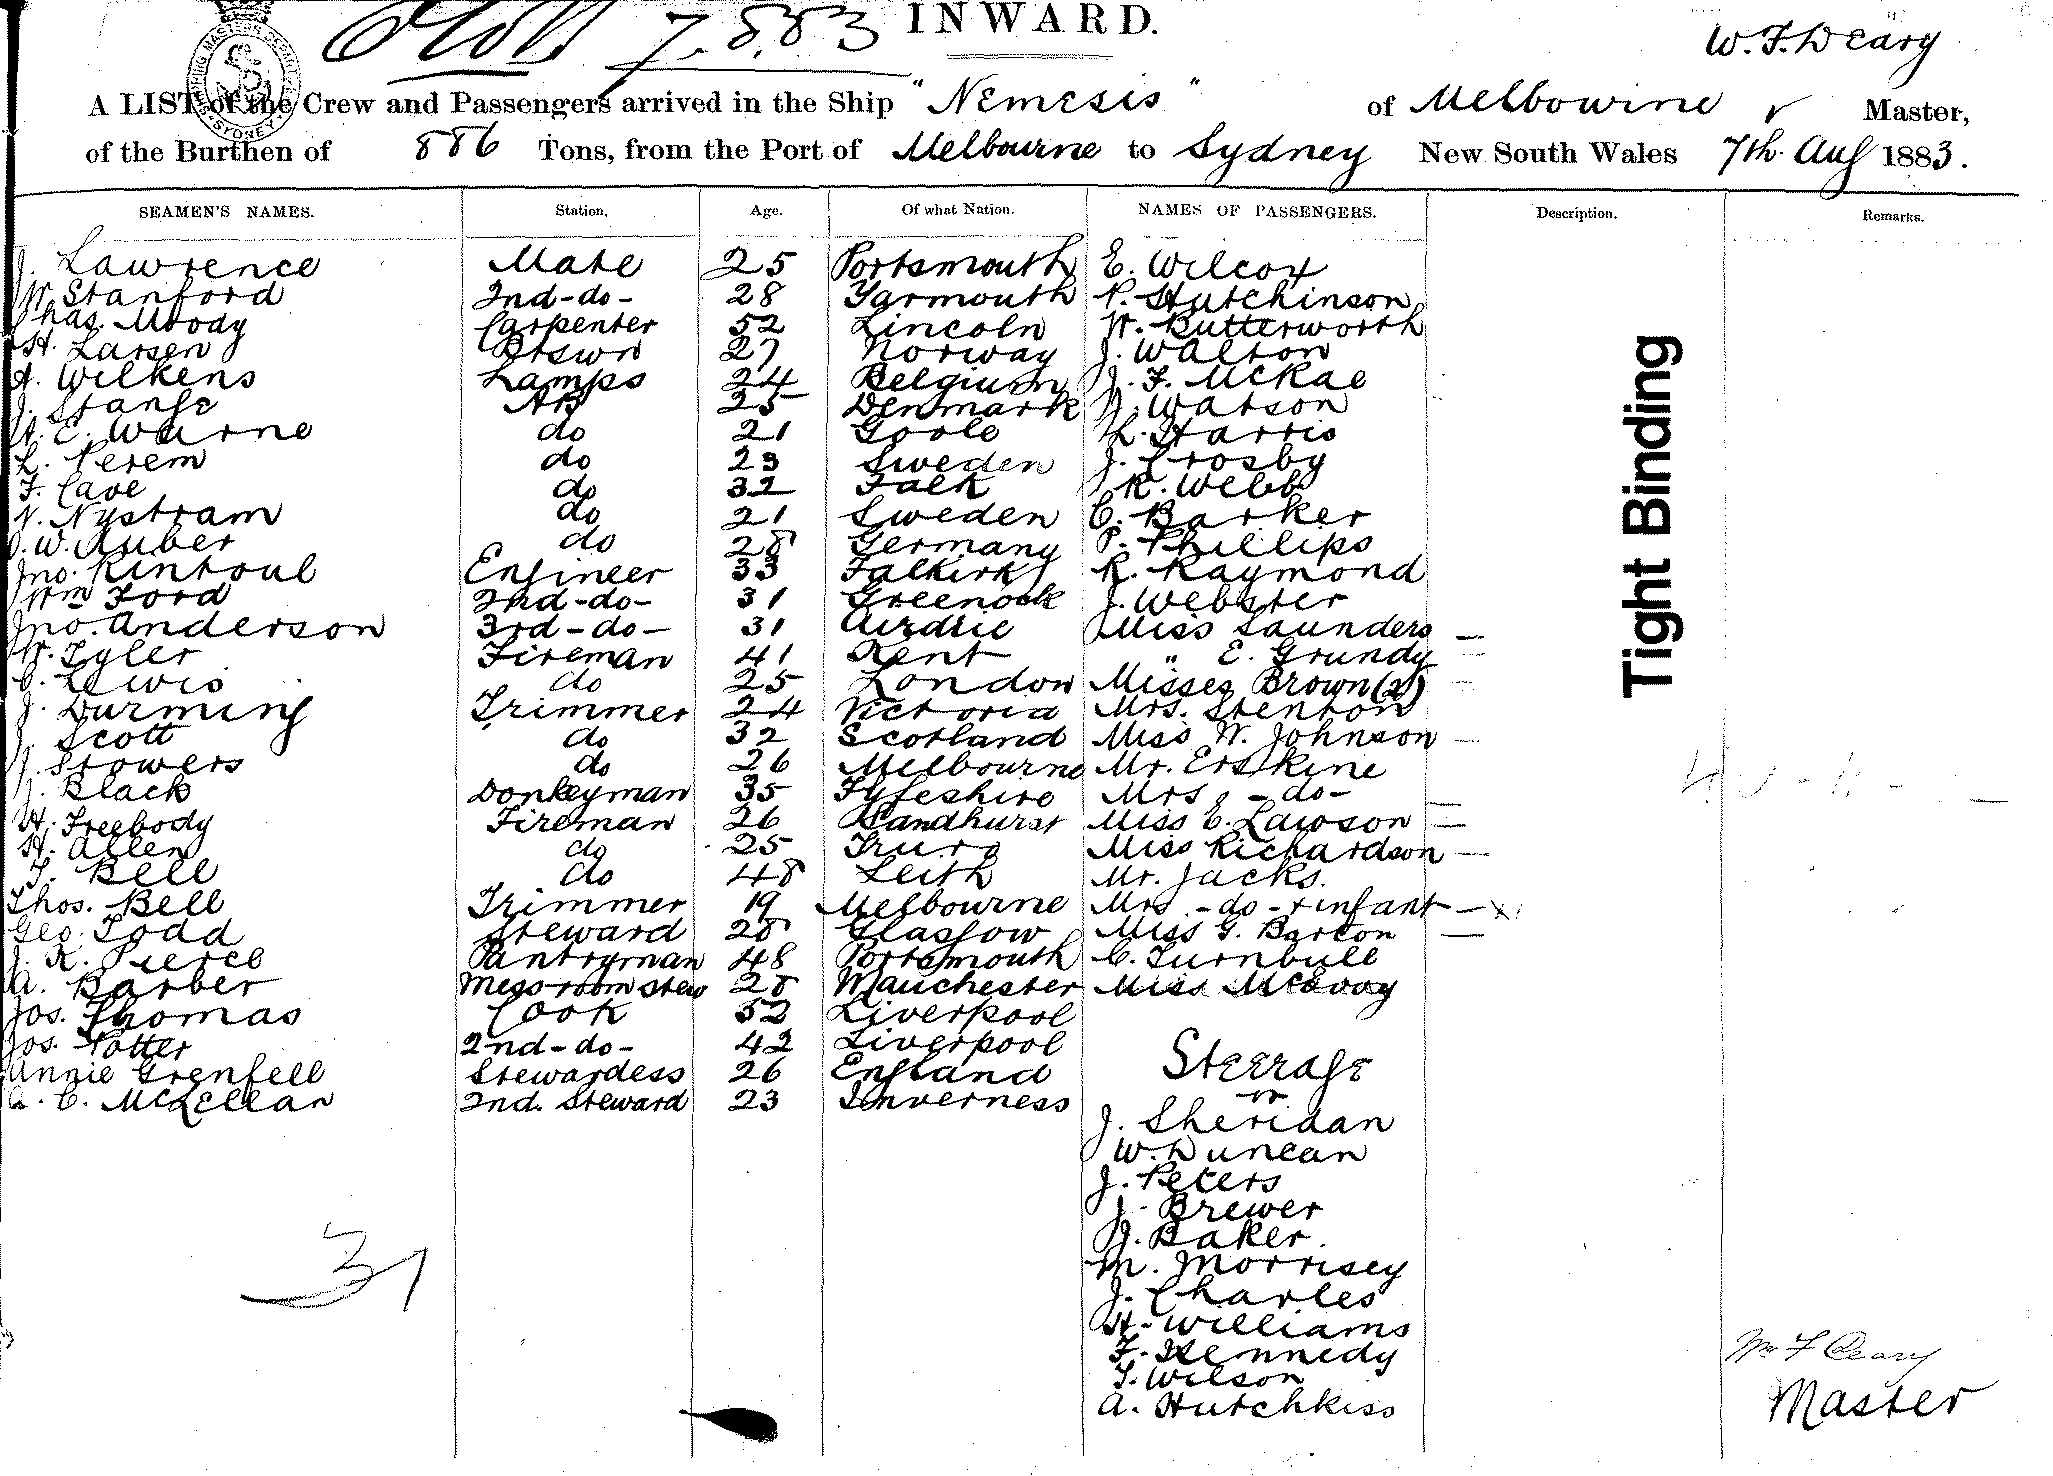 7.8.83 INWARD.
W. F. Deary
A LIST of the Crew and Passengers arrived in the Ship "Nemesis" of Melbourne Master,
of the Burthen of 886 Tons, from the Port of Melbourne to Sydney New South Wales 7th Aug 1883.
SEAMEN'S NAMES. Station. Age. Of what Nation. NAMES OF PASSENGERS. Description. Remarks.
J. Lawrence Mate 25 Portsmouth E. Wilcox
W. Stanford 2nd -do- 28 Yarmouth N. Hutchinson
Chas. Moody Carpenter 52 Lincoln W. Butterworth
H. Larsen Btswn 27 Norway J. Walton
A. Wilkens Lamps 24 Belgium J. F. McRae
J. Stange AB 25 Denmark J. Watson
H. E. Warne do 21 Goole L. Harris
L. Perem do 23 Sweden J. Crosby
F. Cave do 32 Falk R. Webb
N. Nystram do 21 Sweden C. Barker
J. W. Auber do 28 Germany P. Phillips
Jno. Rintoul Engineer 33 Falkirk R. Raymond
Wm Ford 2nd -do- 31 Greenock J. Webster
Jno. Anderson 3rd -do- 31 Airdrie Miss Saunders —
W. Tyler Fireman 41 Kent " E. Grundy —
C. Lewis do 25 London Misses Brown (2) —
J. Durming Trimmer 24 Victoria Mrs. Stenton
J. Scott do 32 Scotland Miss W. Johnson —
J. Stowers do 26 Melbourne Mr. Erskine
J. Black Donkeyman 35 Fyfeshire Mrs. -do- —
H. Freebody Fireman 26 Sandhurst Miss E. Lawson —
H. Allen do 25 Truro Miss Richardson —
F. Bell do 48 Leith Mr. Jacks.
Thos. Bell Trimmer 19 Melbourne Mrs. -do- + infant —
Geo. Todd Steward 28 Glasgow Miss G. Barton —
J. R. Pierce Pantryman 48 Portsmouth C. Turnbull
A. Barber Messroom stew 28 Manchester Miss McEvoy
Jos. Thomas Cook 52 Liverpool
Jos. Potter 2nd -do- 42 Liverpool
Annie Grenfell Stewardess 26 England
A. C. McLellan 2nd. Steward 23 Inverness
Steerage
J. Sheridan
W. Duncan
J. Peters
J. Brewer
J. Baker.
M. Morrisey
J. Charles
H. Williams
F. Kennedy
T. Wilson
A. Hutchkiss
31
Tight Binding
Wm F Deary
Master